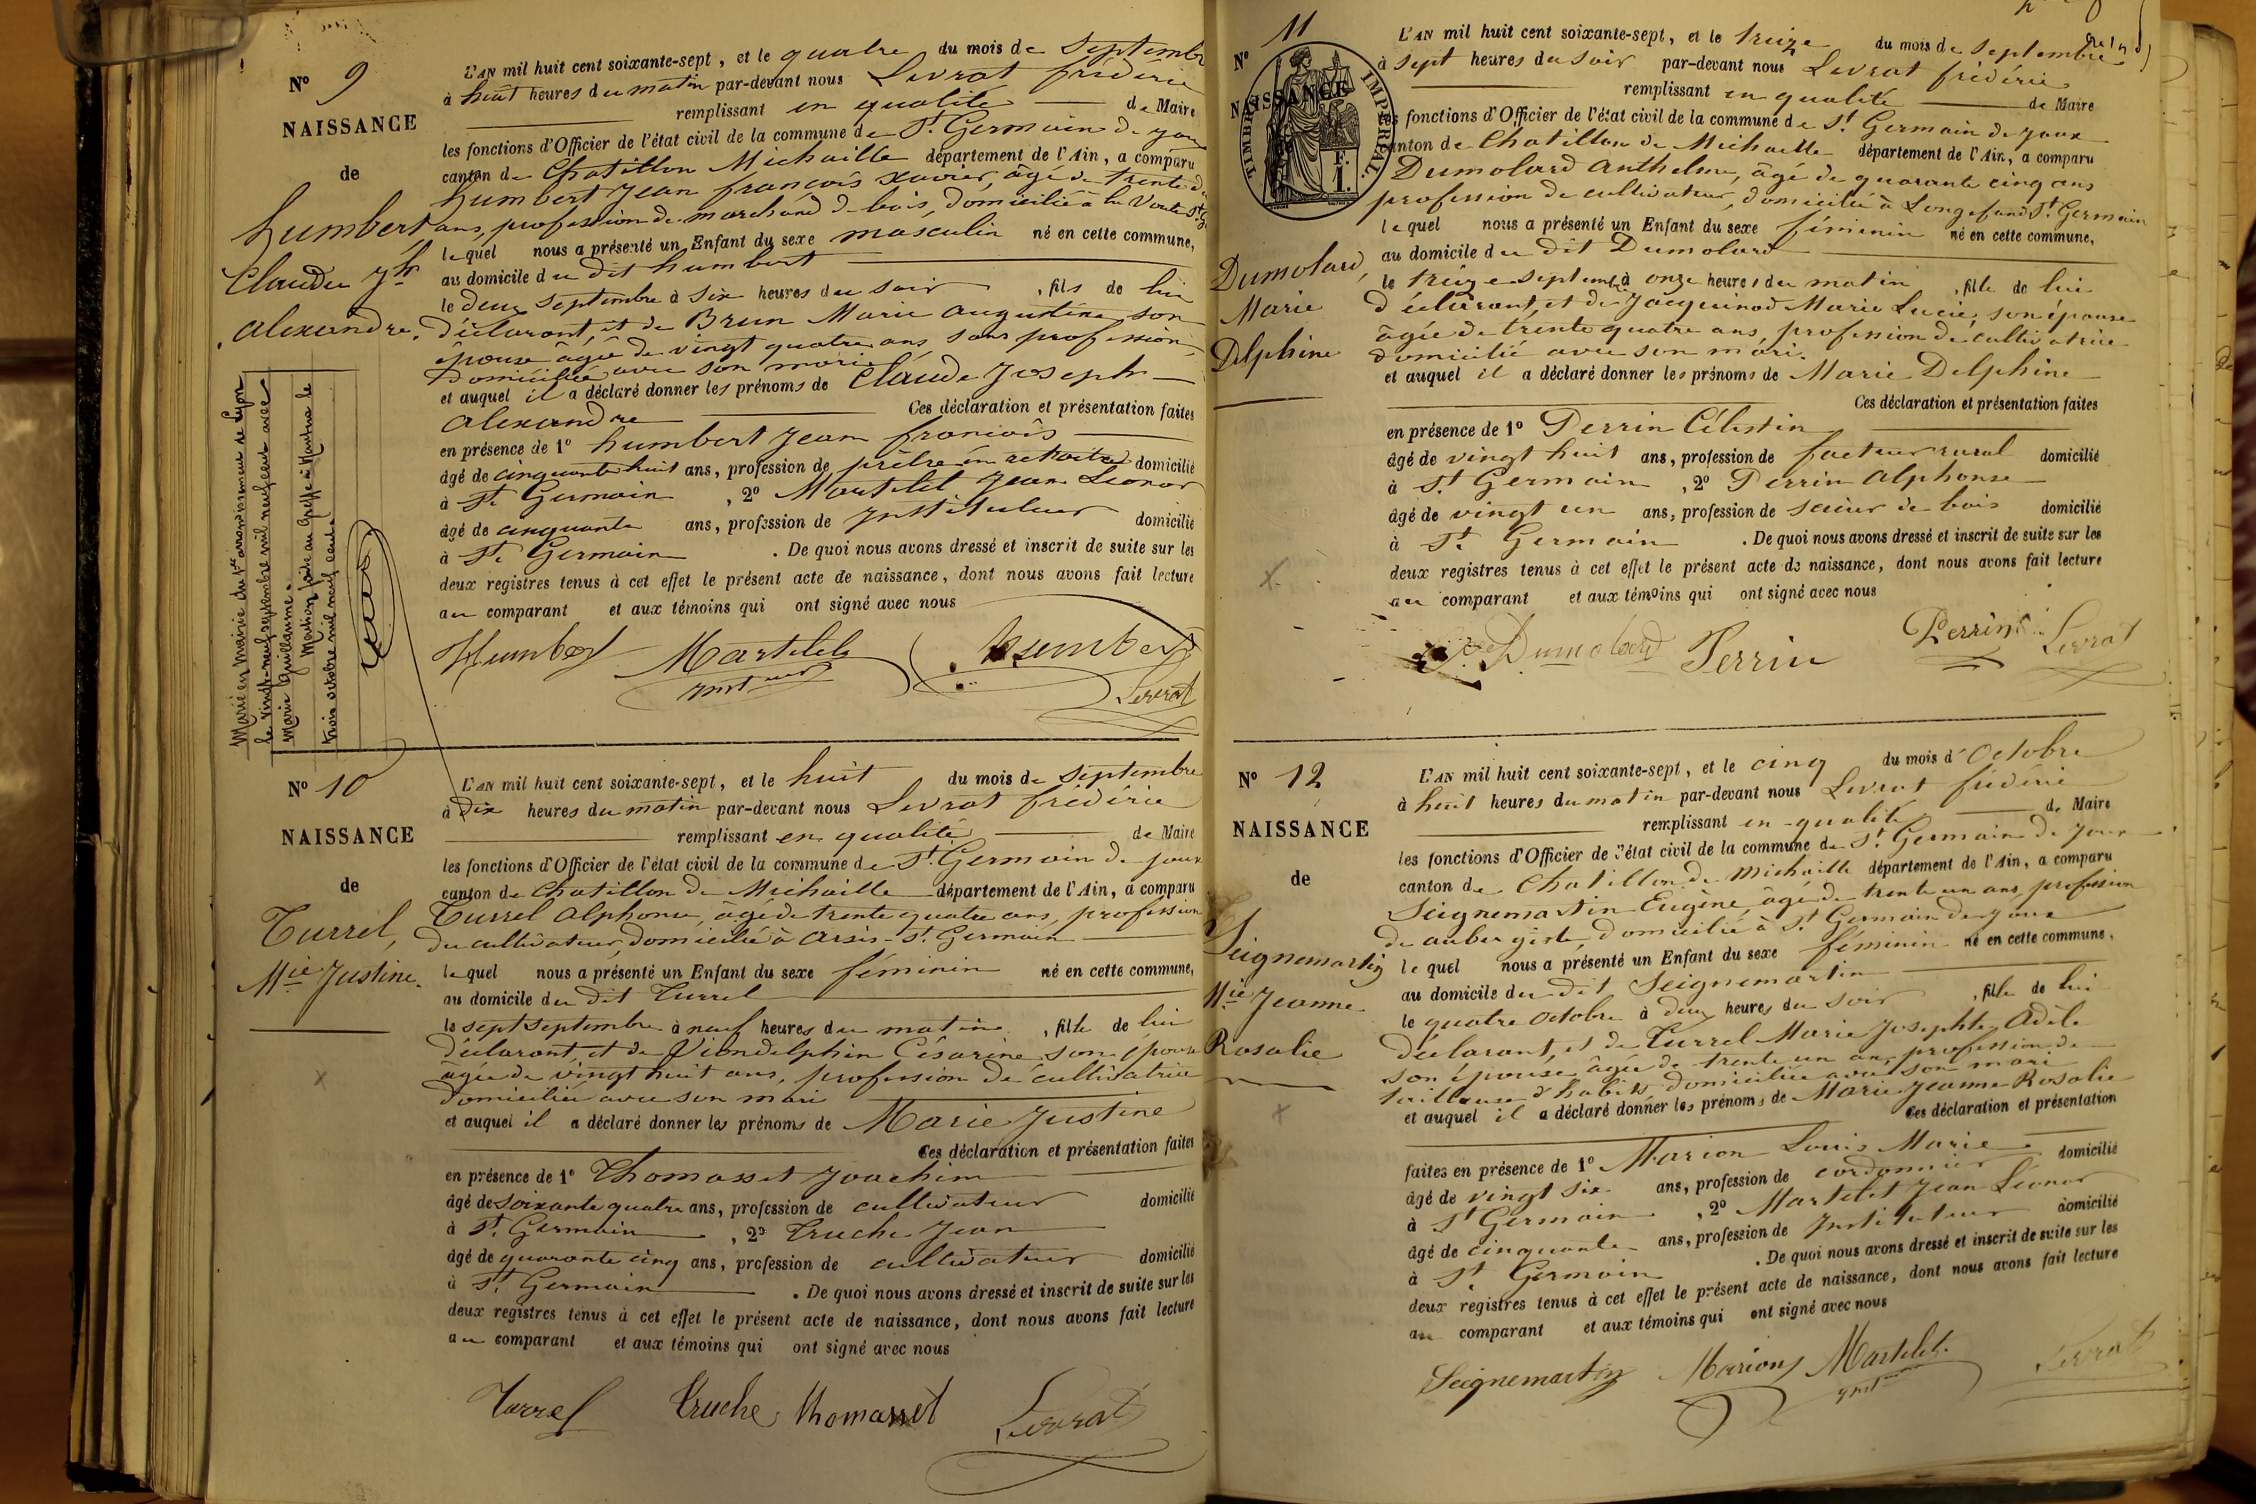 Nº 9
NAISSANCE
de
humbert
Claude Jh
alexandre.
L'AN mil huit cent soixante-sept, et le quatre du mois de Septembre
à huit heures du matin par-devant nous Levrat frédéric
remplissant en qualité de Maire
les fonctions d'Officier de l'état civil de la commune de St. Germain de joux
canton de Chatillon Michaille département de l'Ain, a comparu
humbert Jean françois xavier, âgé de trente
ans, profession de marchand de bois, domicilié à la Voute St.
lequel nous a présenté un Enfant du sexe masculin né en cette commune,
au domicile du dit humbert
le deux Septembre à six heures du soir, fils de lui
déclarant, et de Brun Marie augustine son
épouse âgée de vingt quatre ans, sans profession
domiciliée avec son mari
et auquel il a déclaré donner les prénoms de Claude Joseph
alexandre Ces déclaration et présentation faites
en présence de 1º humbert Jean françois
âgé de cinquante huit ans, profession de prêtre en retraite domicilié
à St. Germain, 2º Martelet Jean Léonor
âgé de cinquante ans, profession de Instituteur domicilié
à St. Germain. De quoi nous avons dressé et inscrit de suite sur les
deux registres tenus à cet effet le présent acte de naissance, dont nous avons fait lecture
au comparant et aux témoins qui ont signé avec nous
Humbert Martelet humbert
inst Levrat
Marié en Mairie du 1er arrondissement de Lyon
le vingt-neuf septembre mil neuf cent avec
Marie Guillaume.
Mention faite au Greffe à Nantua le
trois octobre mil neuf cent
Nº 10
NAISSANCE
de
Turrel,
Mie Justine.
L'AN mil huit cent soixante-sept, et le huit du mois de Septembre
à Dix heures du matin par-devant nous Levrat frédéric
remplissant en qualité de Maire
les fonctions d'Officier de l'état civil de la commune de St. Germain de joux
canton de Chatillon de Michaille département de l'Ain, a comparu
Turrel Alphonse, âgé de trente quatre ans, profession
de cultivateur, domicilié à Arsis-St. Germain
lequel nous a présenté un Enfant du sexe féminin né en cette commune,
au domicile du dit Turrel
le sept septembre à neuf heures du matin, fille de lui
déclarant, et de Viondelphin Césarine son épouse
agée de vingt huit ans, profession de cultivatrice
domiciliée avec son mari
et auquel il a déclaré donner les prénoms de Marie Justine
Ces déclaration et présentation faites
en présence de 1º Thomasset Joachim
âgé de soixante quatre ans, profession de cultivateur domicilié
à St. Germain, 2º Truche Jean
âgé de quarante cinq ans, profession de cultivateur domicilié
à St. Germain. De quoi nous avons dressé et inscrit de suite sur les
deux registres tenus à cet effet le présent acte de naissance, dont nous avons fait lecture
au comparant et aux témoins qui ont signé avec nous
Turrel Truche Thomasset Levrat
Nº 11
NAISSANCE
TIMBRE IMPERIAL
F.
1.
Dumolard,
Marie
Delphine
L'AN mil huit cent soixante-sept, et le treize du mois de septembre
à sept heures du soir par-devant nous Levrat frédéric
remplissant en qualité de Maire
les fonctions d'Officier de l'état civil de la commune de St. Germain de joux
canton de Chatillon de Michaille département de l'Ain, a comparu
Dumolard Anthelme, âgé de quarante cinq ans
profession de cultivateur, domicilié à Longefand St. Germain
lequel nous a présenté un Enfant du sexe féminin né en cette commune,
au domicile du dit Dumolard
le treize septembre à onze heures du matin, fille de lui
déclarant, et de Jacquinod Marie Lucie, son épouse
âgée de trente quatre ans, profession de cultivatrice
domicilié avec son mari.
et auquel il a déclaré donner les prénoms de Marie Delphine
Ces déclaration et présentation faites
en présence de 1º Perrin Célestin
âgé de vingt huit ans, profession de facteur rural domicilié
à St. Germain, 2º Perrin Alphonse
âgé de vingt un ans, profession de scieur de bois domicilié
à St. Germain. De quoi nous avons dressé et inscrit de suite sur les
deux registres tenus à cet effet le présent acte de naissance, dont nous avons fait lecture
au comparant et aux témoins qui ont signé avec nous
Dumolard Perrin Perrin Levrat
Nº 12
NAISSANCE
de
Seignemartin
Mie Jeanne
Rosalie
L'AN mil huit cent soixante-sept, et le cinq du mois d'Octobre
à huit heures du matin par-devant nous Levrat frédéric
remplissant en qualité de Maire
les fonctions d'Officier de l'état civil de la commune de St. Germain de joux
canton de Chatillon de Michaille département de l'Ain, a comparu
Seignemartin Eugène âgé de trente un ans, profession
de aubergiste, domicilié à St Germain de joux
lequel nous a présenté un Enfant du sexe féminin né en cette commune,
au domicile du dit Seignemartin
le quatre Octobre à deux heures du soir, fille de lui
déclarant, et de Turrel Marie Josephte Adèle
son épouse âgée de trente un an, profession de
tailleuse d'habits domiciliée avec son mari
et auquel il a déclaré donner les prénoms de Marie Jeanne Rosalie
Ces déclaration et présentation
faites en présence de 1º Marion Louis Marie
âgé de vingt six ans, profession de cordonnier domicilié
à St Germain, 2º Martelet Jean Léonor
âgé de cinquante ans, profession de Instituteur domicilié
à St. Germain. De quoi nous avons dressé et inscrit de suite sur les
deux registres tenus à cet effet le présent acte de naissance, dont nous avons fait lecture
au comparant et aux témoins qui ont signé avec nous
Seignemartin Marion Martelet. Levrat
inst